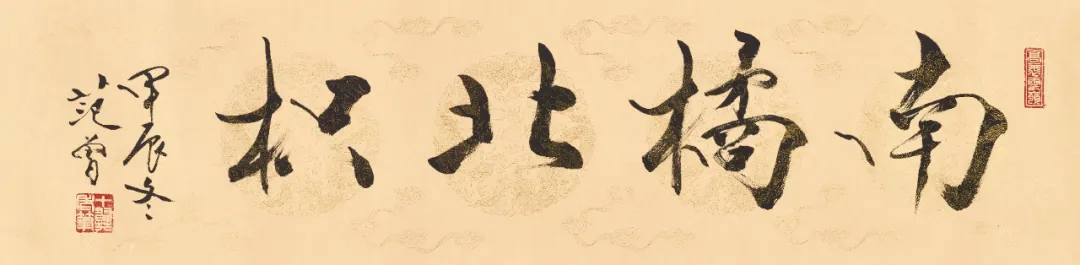 南橘北枳
甲辰冬
范曾